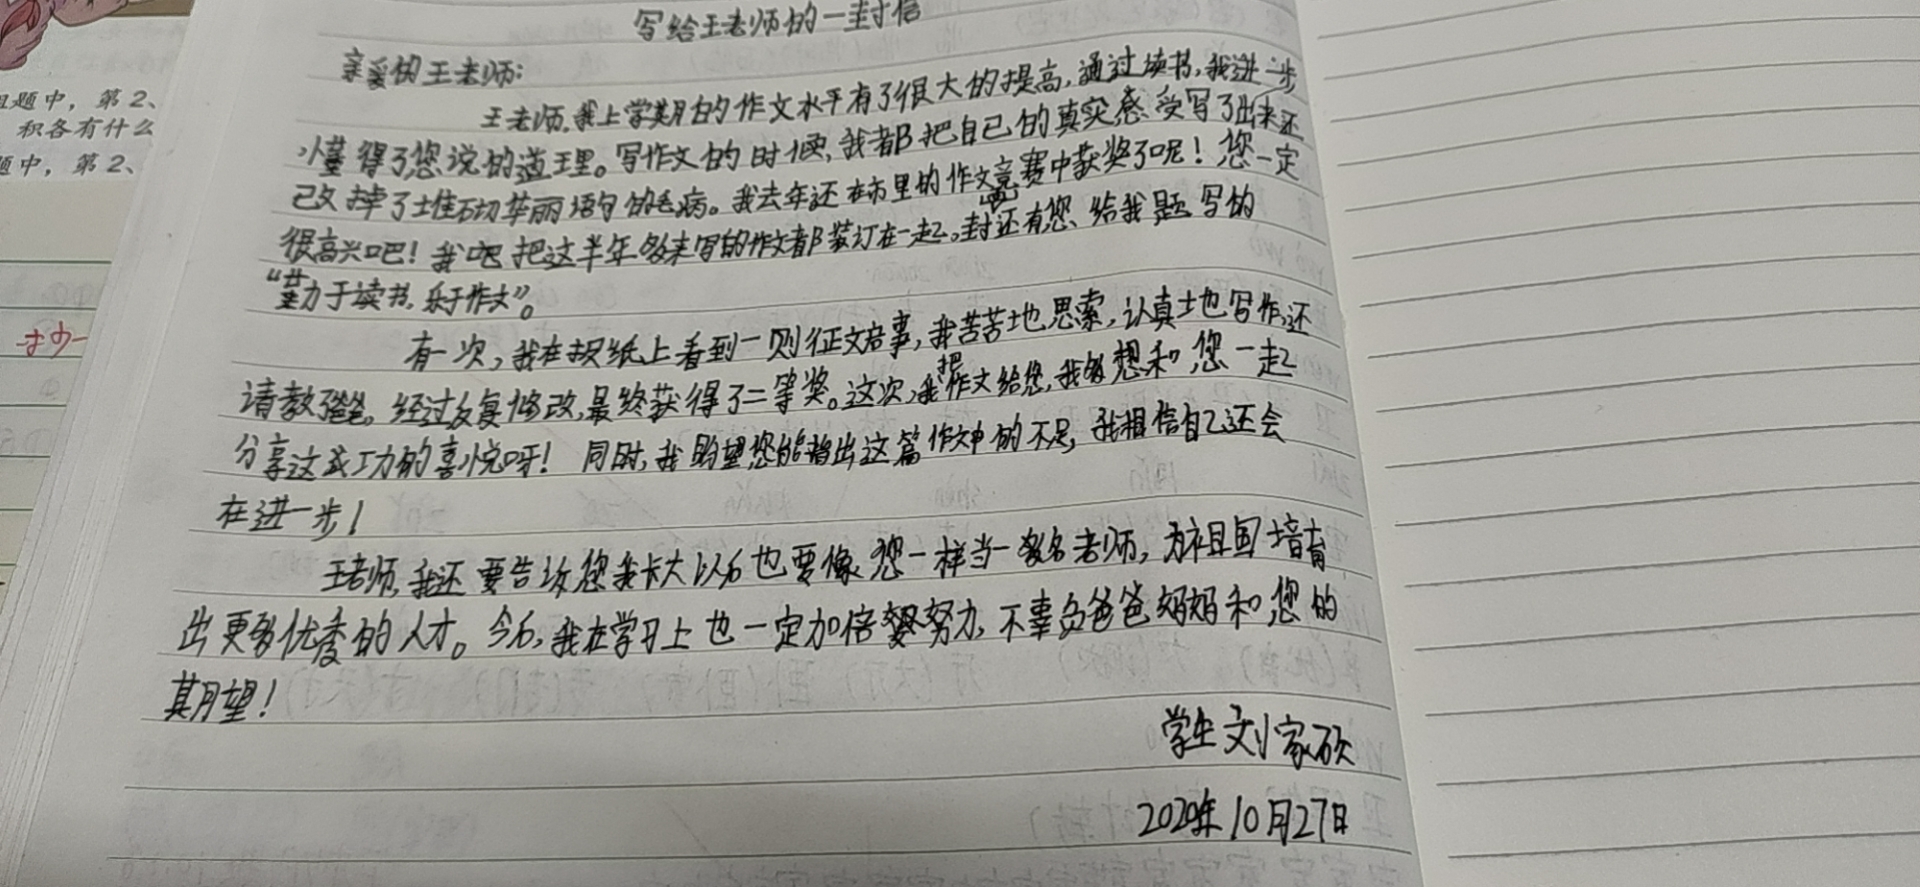 写给王老师的一封信
亲爱的王老师:
王老师,我上学期的作文水平有了很大的提高,通过读书,我进一步
懂得了您说的道理。写作文的时候,我都把自己的真实感受写了出来还
改掉了堆砌华丽语句的毛病。我去年还在市里的作文竞赛中获奖了呢!您一定
很高兴吧!我吧把这半年多来写的作文都装订在一起。封还有您给我题写的
“勤于读书,乐于作文”。
有一次,我在报纸上看到一则征文启事,我苦苦地思索,认真地写作,还
请教了爸爸,经过反复修改,最终获得了二等奖。这次,我把作文给您,我多想和您一起
分享这成功的喜悦呀!同时,我盼望您能指出这篇作文中的不足,我相信自己还会
在进一步!
王老师,我还要告诉您我长大以后也要像您一样当一名老师,为祖国培育
出更多优秀的人才。今后,我在学习上也一定加倍努力,不辜负爸爸妈妈和您的
期望!
学生刘家硕
2020年10月27日
组题中,第2、
积各有什么
题中,第2、